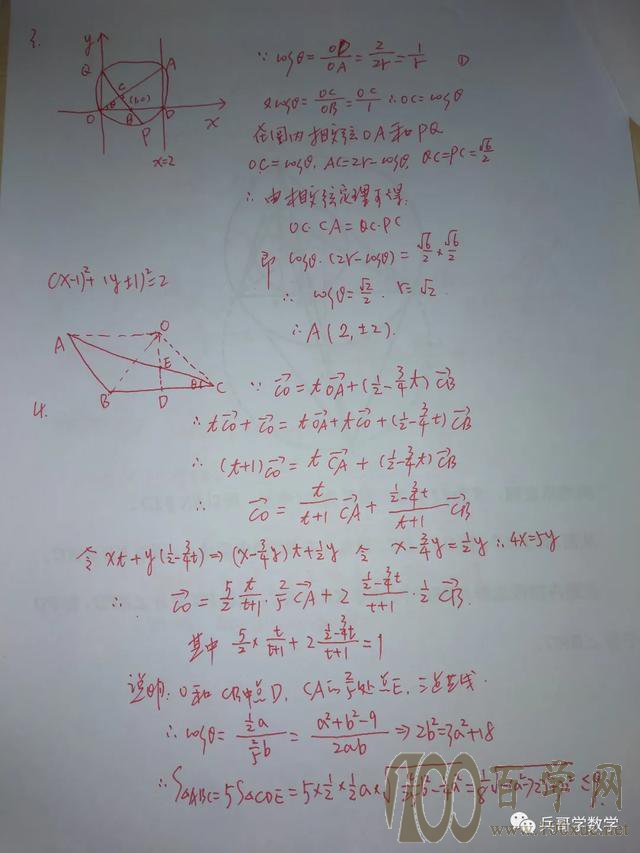 3.
y
Q
A
C
(1,0)
θ
O
B
D
x
P
x=2
∵ cosθ = OD/OA = 2/2r = 1/r ①
cosθ = OC/OB = OC/1 ∴ OC = cosθ
在圆内相交弦OA和PQ
OC = cosθ, AC = 2r-cosθ, QC=PC=√6/2
∴ 由相交弦定理可得:
OC·CA = QC·PC
即 cosθ·(2r-cosθ) = √6/2 × √6/2
(x-1)²+(y±1)²=2
∴ cosθ=√2/2 . r=√2 .
∴ A(2,±2).
A
O
E
B
D
θ
C
4.
∵ CO = tOA+(1/2-3/4t)CB
∴ tCO+CO = tOA+tCO+(1/2-3/4t)CB
∴ (t+1)CO = tCA+(1/2-3/4t)CB
∴ CO = t/(t+1) CA + (1/2-3/4t)/(t+1) CB
令 xt+y(1/2-3/4t) ⇒ (x-3/4y)t+1/2y 令 x-3/4y=1/2y ∴ 4x=5y
∴ CO = 5/2 t/(t+1) · 2/5 CA + 2 (1/2-3/4t)/(t+1) · 1/2 CB.
其中 5/2 × t/(t+1) + 2 (1/2-3/4t)/(t+1) = 1
说明: O和CB中点D, CA的2/5处点E, 三点共线.
∴ cosθ = (1/2a)/(2/5b) = (a²+b²-9)/2ab ⇒ 2b²=3a²+18
∴ S△ABC = 5S△CDE = 5×1/2×1/2a×
100百学网
兵哥学数学